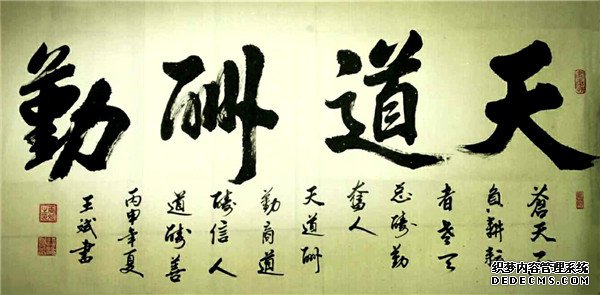 天道酬勤
蒼天不
負耕耘
者老天
总酬勤
奮人
天道酬
勤商道
酬信人
道酬善
丙申年夏
王斌書
织梦内容管理系统
DEDECMS.COM